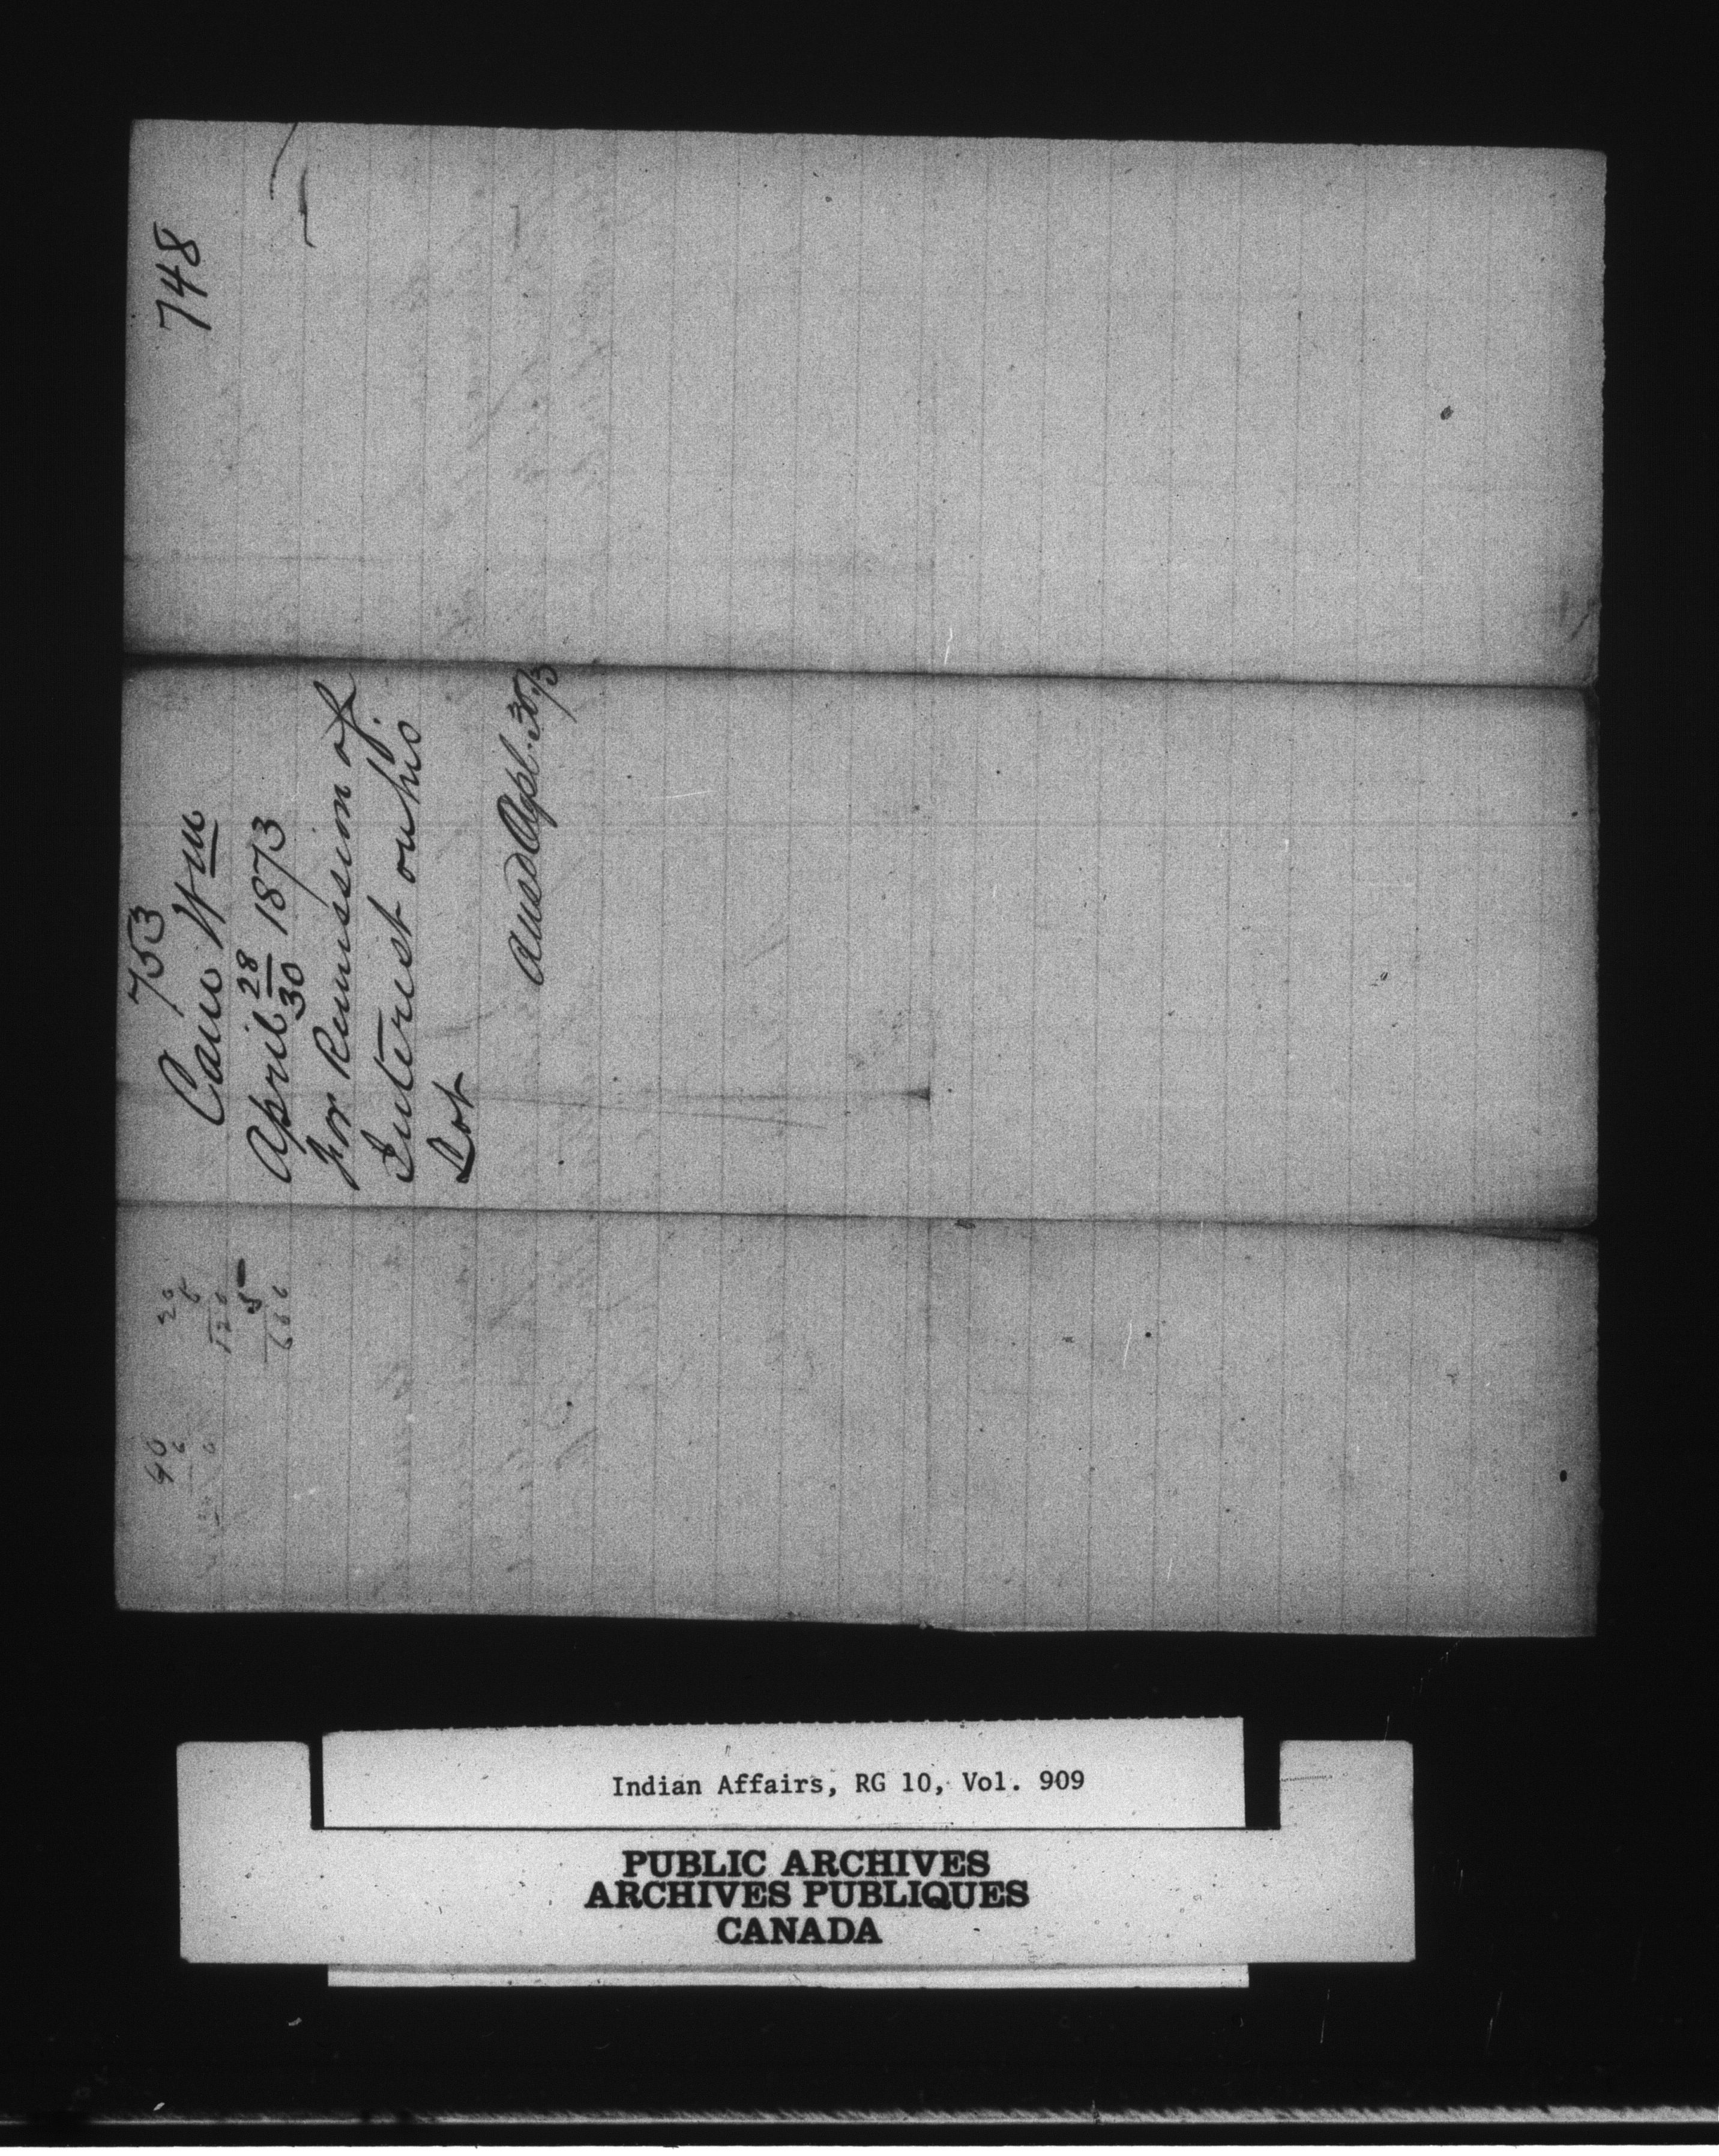 748
753
Cain Wm
April 28/30 1873
For Remission of
Interest on his
Lot
Ansd Apl. 30/73
20
6
120
5
600
40
6
Indian Affairs, RG 10, Vol. 909
PUBLIC ARCHIVES
ARCHIVES PUBLIQUES
CANADA